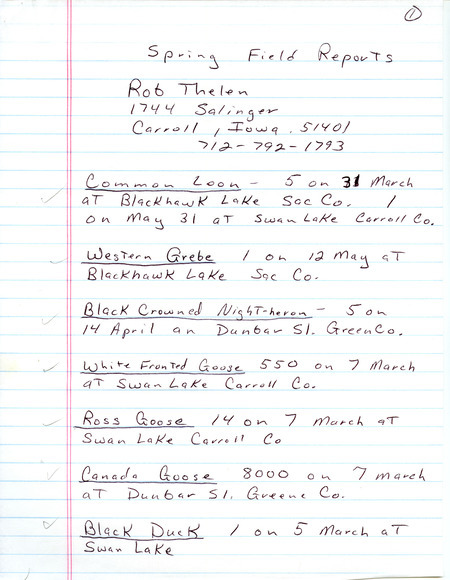 1
Spring Field Reports
Rob Thelen
1744 Salinger
Carroll, Iowa. 51401
712-792-1793
Common Loon - 5 on 31 March
at Blackhawk Lake Sac Co. 1
on May 31 at Swan Lake Carroll Co.
Western Grebe 1 on 12 May at
Blackhawk Lake Sac Co.
Black Crowned Night-heron - 5 on
14 April an Dunbar Sl. GreenCo.
White Fronted Goose 550 on 7 March
at Swan Lake Carroll Co.
Ross Goose 14 on 7 March at
Swan Lake Carroll Co
Canada Goose 8000 on 7 march
at Dunbar Sl. Greene Co.
Black Duck 1 on 5 March at
Swan Lake